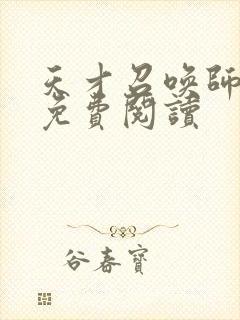 天才召喚師
免費閱讀
谷春寶